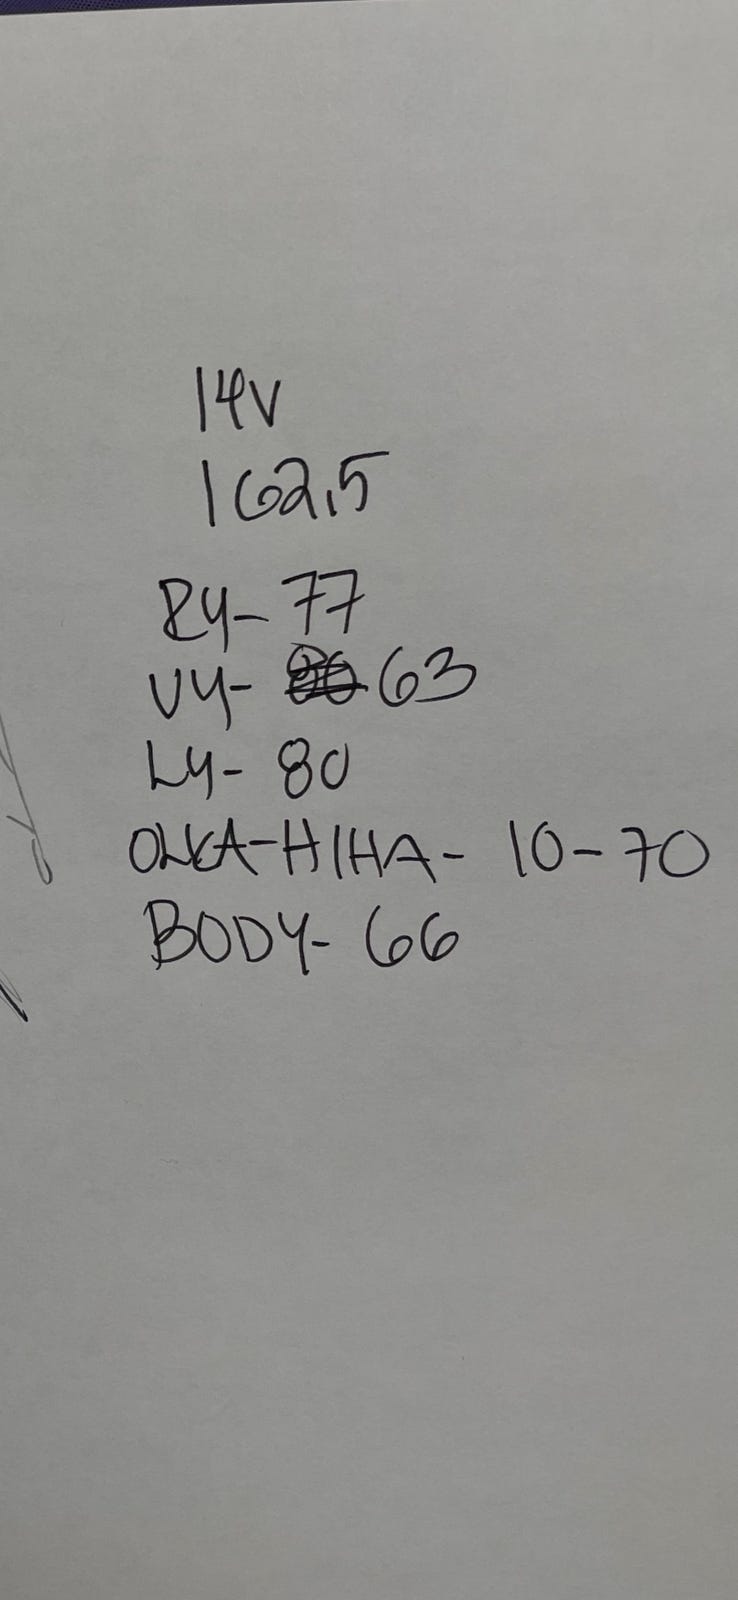 14V
162,5
RY- 77
VY- 63
LY- 80
OLKA-HIHA- 10-70
BODY- 66